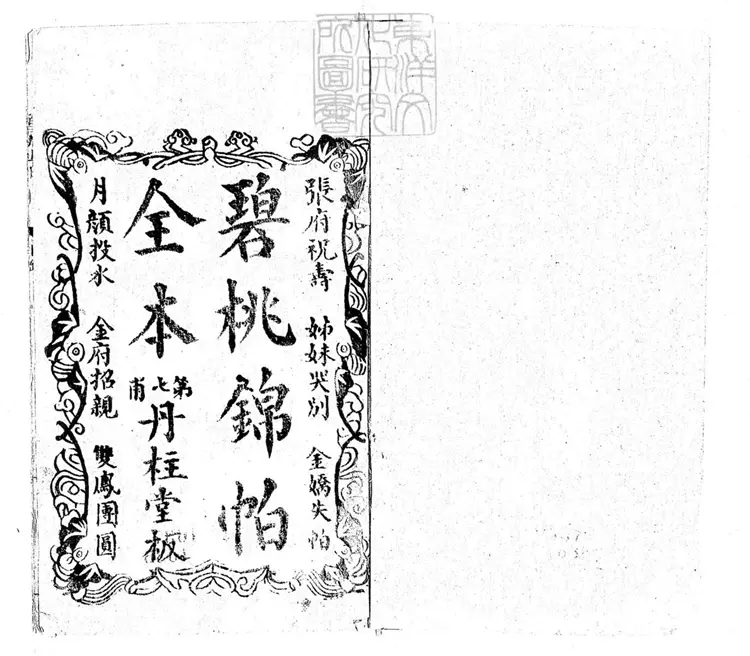 東洋文
化研究
所圖書
張府祝壽 姊妹哭別 金嬌失帕
碧桃錦帕
全本
第七甫
丹柱堂板
月顏投水 金府招親 雙鳳團圓